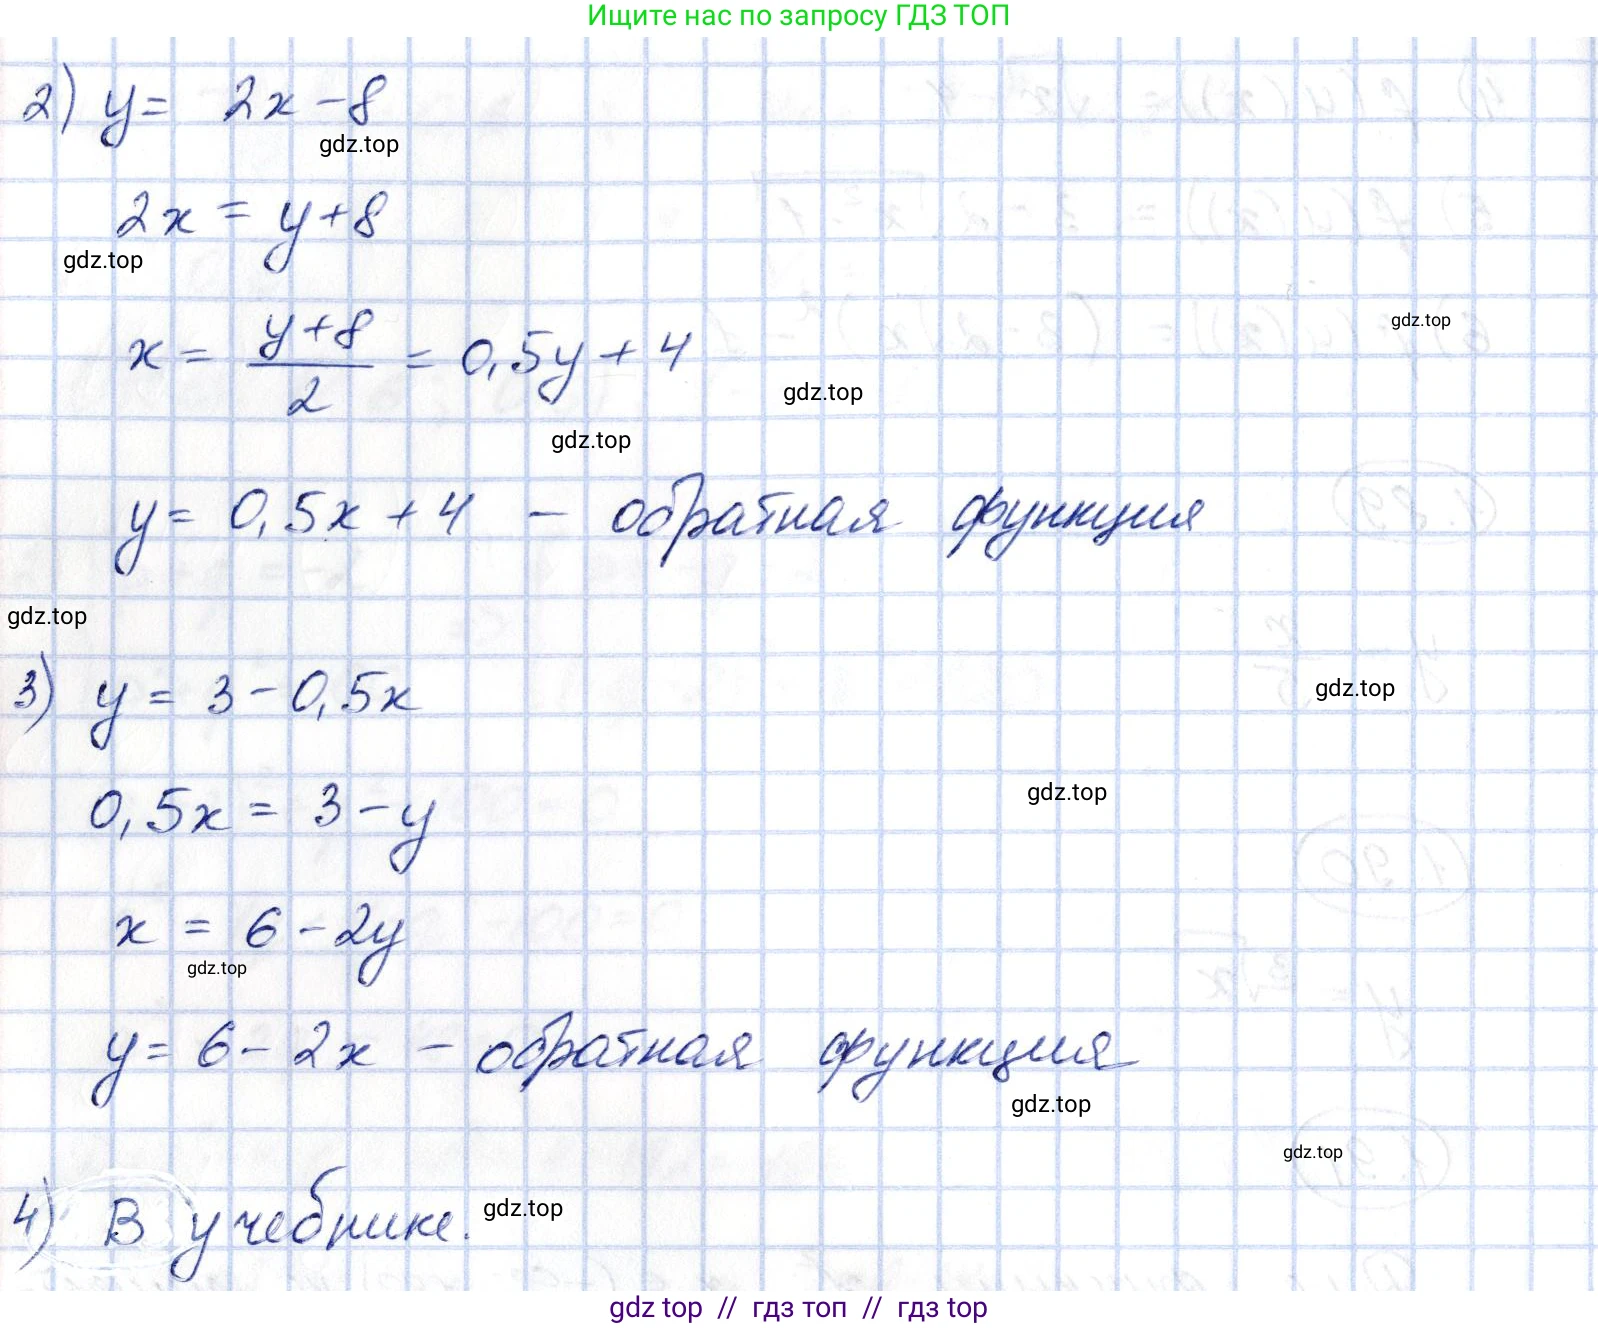 Ищите нас по запросу ГДЗ ТОП
2) y = 2x - 8
gdz.top
2x = y + 8
gdz.top
x = (y+8)/2 = 0,5y + 4
gdz.top
gdz.top
gdz.top
y = 0,5x + 4 - обратная функция
gdz.top
3) y = 3 - 0,5x
gdz.top
0,5x = 3 - y
gdz.top
x = 6 - 2y
gdz.top
y = 6 - 2x - обратная функция
gdz.top
gdz.top
4) В учебнике.
gdz.top
gdz top // гдз топ // гдз top